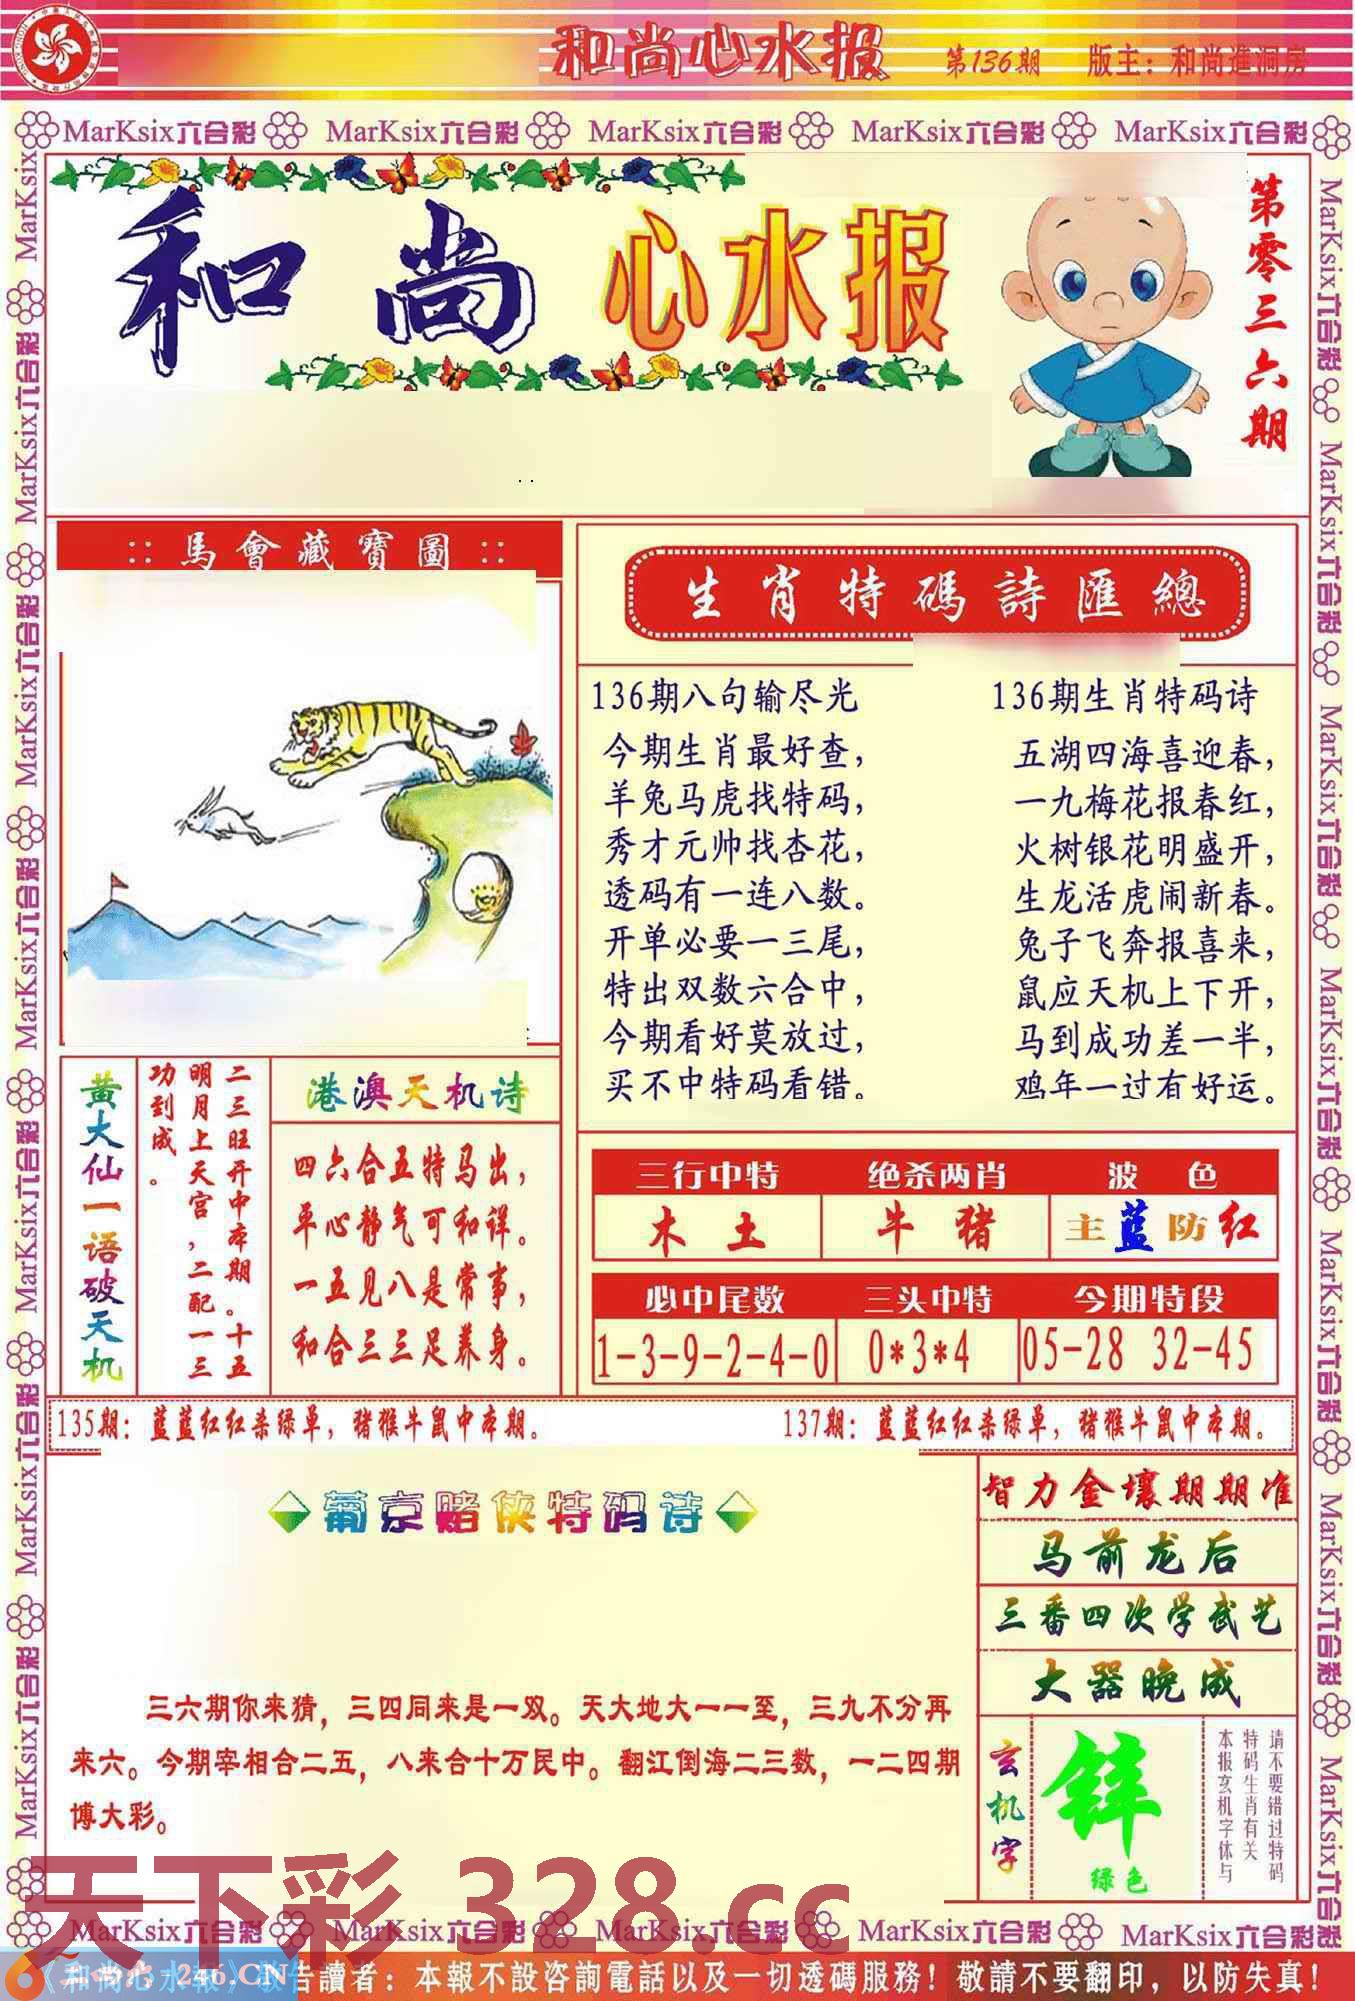 和尚心水报 第136期 版主：和尚進洞房
MarKsix六合彩 MarKsix六合彩 MarKsix六合彩 MarKsix六合彩 MarKsix六合彩
和尚心水报
第零三六期
:: 馬會藏寶圖 ::
生肖特碼詩匯總
136期八句输尽光
今期生肖最好查，
羊兔马虎找特码，
秀才元帅找杏花，
透码有一连八数。
开单必要一三尾，
特出双数六合中，
今期看好莫放过，
买不中特码看错。
136期生肖特码诗
五湖四海喜迎春，
一九梅花报春红，
火树银花明盛开，
生龙活虎闹新春。
兔子飞奔报喜来，
鼠应天机上下开，
马到成功差一半，
鸡年一过有好运。
黄大仙一语破天机
二三旺开中本期。十五
明月上天宫，二配一三
功到成。
港澳天机诗
四六合五特马出，
平心静气可和详。
一五见八是常事，
和合三三足养身。
三行中特 绝杀两肖 波 色
木 土 牛 猪 主蓝防红
必中尾数 三头中特 今期特段
1-3-9-2-4-0 0*3*4 05-28 32-45
135期：蓝蓝红红杀绿单，猪猴牛鼠中本期。 137期：蓝蓝红红杀绿单，猪猴牛鼠中本期。
葡京赌侠特码诗
三六期你来猜，三四同来是一双。天大地大一一至，三九不分再
来六。今期宰相合二五，八来合十万民中。翻江倒海二三数，一二四期
博大彩。
智力金壤期期准
马前龙后
三番四次学武艺
大器晚成
玄机字
锌
绿色
请不要错过特码
特码生肖有关
本报玄机字体与
天下彩 328.cc
MarKsix六合彩 MarKsix六合彩 MarKsix六合彩 MarKsix六合彩 MarKsix六合彩
246.CN
告讀者：本報不設咨詢電話以及一切透碼服務！敬請不要翻印，以防失真！